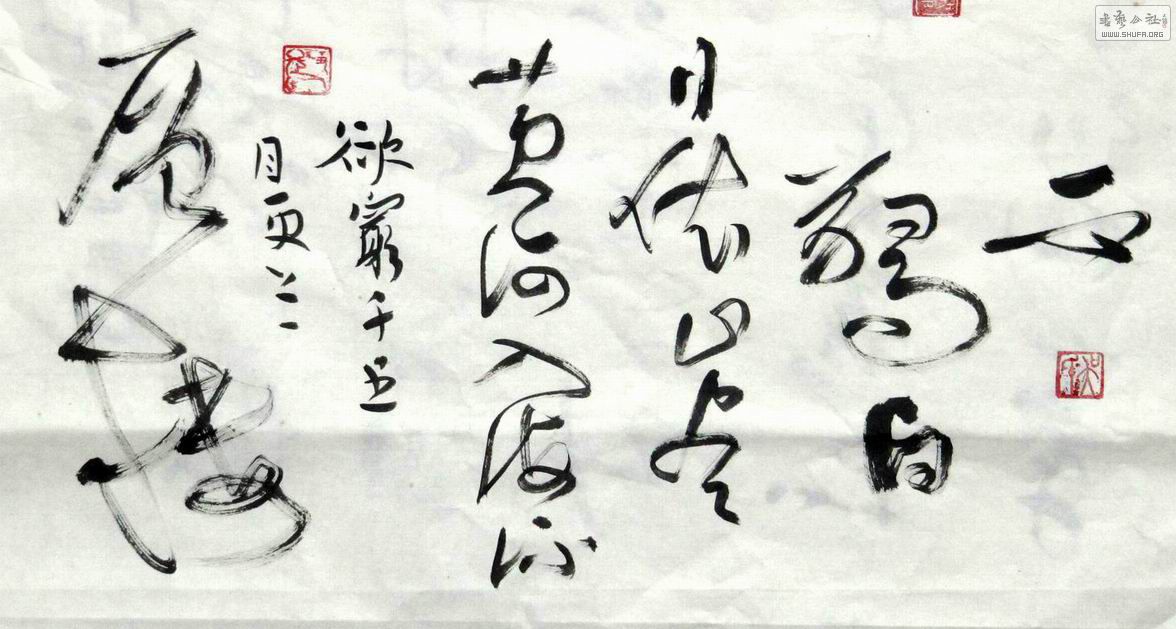 白
日依山尽
黄河入海流
欲窮千里
目更上一
層樓
書藝公社
WWW.SHUFA.ORG